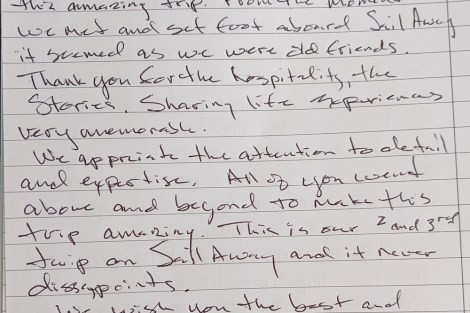 this amazing trip. From the moment
we met and set foot aboard Sail Away
it seemed as we were old friends.
Thank you for the hospitality, the
Stories. Sharing life experiences
very memorable.
We appreciate the attention to detail
and expertise. All of you went
above and beyond to make this
trip amazing. This is our 2 and 3rd
trip on Sail Away and it never
disappoints.
wish you the best and